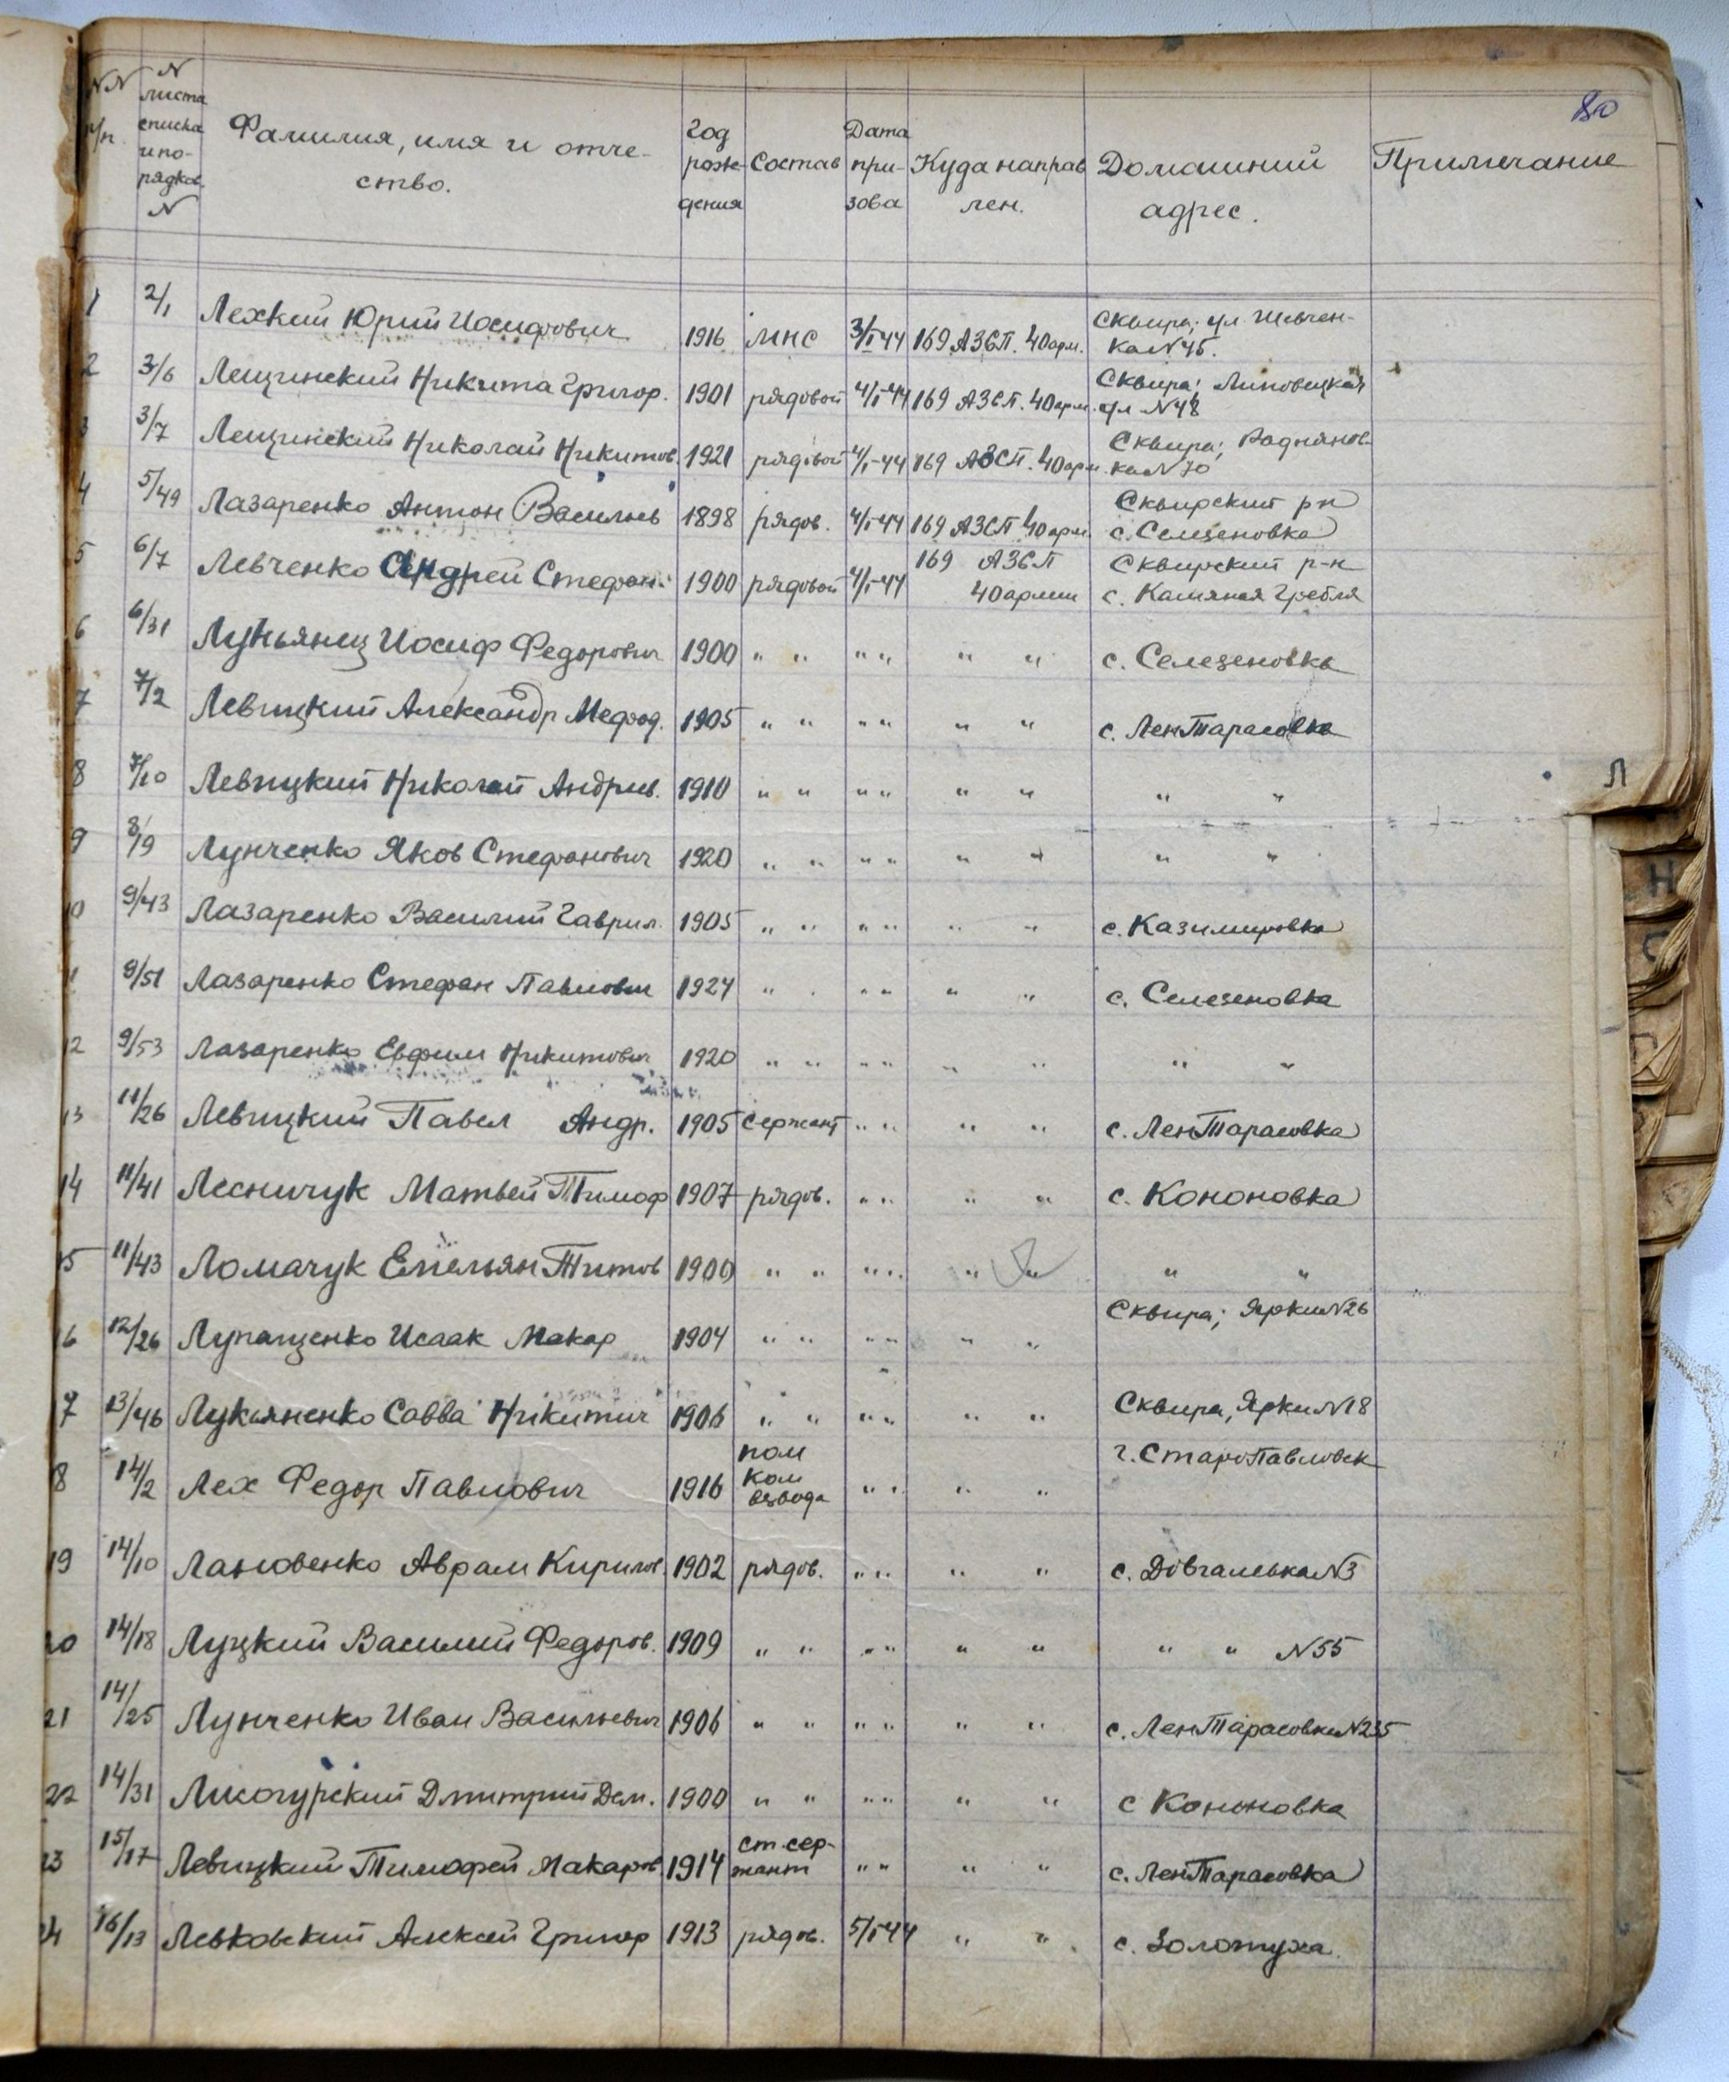 80
NN п/п | N листа списка и по-рядков. N | Фамилия, имя и отче-ство. | Год рож-дения | Состав | Дата при-зова | Куда направ лен. | Домашний адрес. | Примечание
1 2/1 Лехкий Юрий Иосифович 1916 мнс 3/I-44 169 АЗСП. 40 арм. Сквира; ул Шевчен-
ка N45.
2 3/6 Лещинский Никита Григор. 1901 рядовой 4/I-44 169 АЗСП. 40 арм. Сквира; Липовецкая
ул N48
3 3/7 Лещинский Николай Никитов. 1921 рядовой 4/I-44 169 АЗСП. 40 арм. Сквира; Роднянов
ка N70
4 5/49 Лазаренко Антон Васильев 1898 рядов. 4/I-44 169 АЗСП 40 арм. Сквирский р-н
с. Селезеновка
5 6/7 Левченко Андрей Стефан. 1900 рядовой 4/I-44 169 АЗСП Сквирский р-н
40 армии с. Камяная Гребля
6 6/31 Лукьянец Иосиф Федорович 1900 " " " " " " с. Селезеновка
7 7/2 Левицкий Александр Мефод. 1905 " " " " " " с. ЛенТарасовка
8 7/10 Левицкий Николай Андрив. 1910 " " " " " " " "
9 8/9 Лунченко Яков Стефанович 1920 " " " " " " " "
10 9/43 Лазаренко Василий Гаврил. 1905 " " " " " " с. Казимировка
11 9/51 Лазаренко Стефан Павлович 1924 " " " " " " с. Селезеновка
12 9/53 Лазаренко Евфим Никитович 1920 " " " " " " " "
13 11/26 Левицкий Павел Андр. 1905 сержант " " " " с. ЛенТарасовка
14 11/41 Лесничук Матвей Тимоф 1907 рядов. " " " " с. Кононовка
15 11/43 Ломачук Емельян Титов 1900 " " " " " " " "
16 12/26 Лупащенко Исаак Макар 1904 " " " " " " Сквира; Ярки N26
17 13/46 Лукьяненко Савва Никитич 1906 " " " " " " Сквира, Ярки N18
18 14/2 Лех Федор Павлович 1916 пом ком взвода " " " " г. СтароПавловск
19 14/10 Лановенко Аврам Кирилов. 1902 рядов. " " " " с. Довгалевка N3
20 14/18 Луцкий Василий Федоров. 1909 " " " " " " " " N55
21 14/25 Лунченко Иван Васильевич 1906 " " " " " " с. ЛенТарасовка N235
22 14/31 Лисогурский Дмитрий Дем. 1900 " " " " " " с Кононовка
23 15/17 Левицкий Тимофей Макаров. 1914 ст. сер-жант " " " " с. ЛенТарасовка
24 16/13 Левковский Алексей Григор 1913 рядов. 5/I-44 " " с. Золотуха.
Л
Н
С